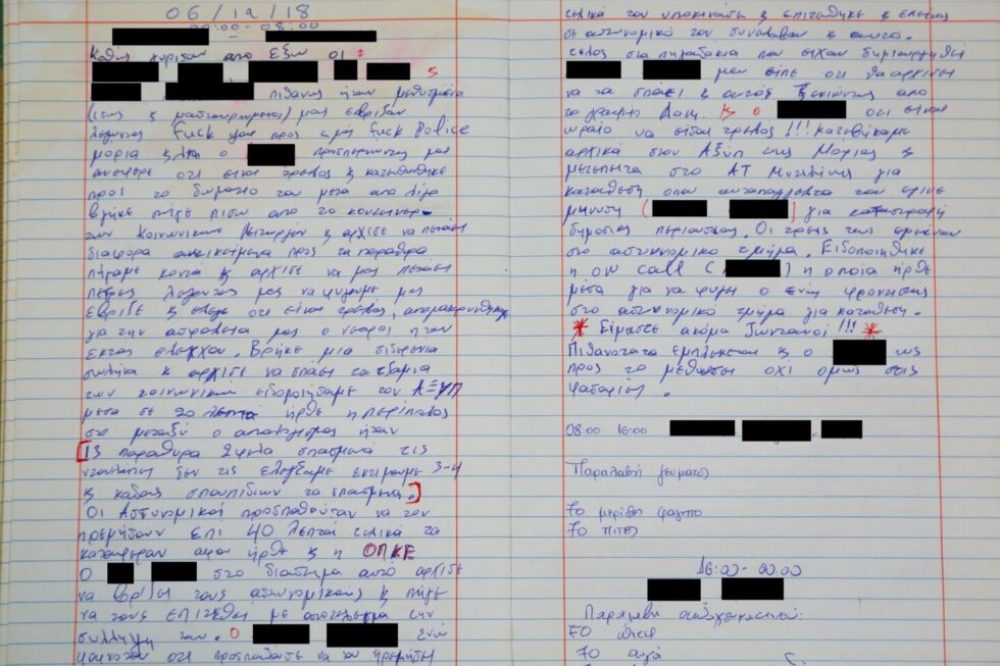 06/12/18
00:00 - 08:00
Καθώς γυρίζαν από έξω οι:
ς
πιθανώς ήταν μεθυσμένα
(ίσως ς μαστουρωμένοι) μας έβριζαν
λέγοντας Fuck you προς εμάς Fuck Police
μόρια ς όλη ο προσπερνώντας μας
ανέφερε ότι είναι τρελός ς κατευθύνθηκε
προς το δωμάτιο του μετά από λίγο
βγήκε πήγε πίσω από το κοντέινερ
των Κοινωνικών Λειτουργών ς άρχισε να πετάει
διάφορα αντικείμενα προς τα παράθυρα
πήγαμε κοντά ς άρχισε να μας πετάει
πέτρες λέγοντας μας να φύγουμε μας
έβριζε ς έλεγε ότι είναι τρελός, απομακρυνθήκαμε
για την ασφάλεια μας ο νεαρός ήταν
εκτός ελέγχου. Βρήκε μια σιδερένια
σωλήνα κ άρχισε να σπάει τα τζάμια
των κοινωνικών ειδοποιήσαμε τον ΑΞΥΠ
μέσα σε 20 λεπτά ήρθε η περίπολος
στο μεταξύ ο απολογισμός ήταν
[13 παράθυρα σπασμένα τις
ντουλάπες δεν τις ελέγξαμε εκτιμούμε 3-4
ς κάδους σκουπιδιών τα σπασμένα.]
Οι Αστυνομικοί προσπαθούσαν να τον
ηρεμήσουν επί 40 λεπτά τελικά τα
κατάφεραν αφού ήρθε ς η ΟΠΚΕ
Ο στο διάστημα αυτό άρχισε
να βρίζει τους αστυνομικούς ς πήγε
να τους επιτεθεί με αποτέλεσμα την
σύλληψη του. Ο ενώ
φαινόταν ότι προσπαθούσε να τον ηρεμήσει
τελικά τον υποκινούσε ς επιτέθηκε ς εκείνος
σε αστυνομικό τον συνέλαβαν κ αυτό.
τέλος στα πηγαδάκια που είχαν δημιουργηθεί
μου είπε ότι θα αρχίσει
να τα σπάει ς αυτός ξεκινώντας από
το γραφείο ς ο ότι είναι
ωραίο να είσαι τρελός!!! κατεβήκαμε
αρχικά στον ΑΞΥΠ της Μόριας ς
μετέπειτα στο ΑΤ Μυτιλήνης για
κατάθεση όπου αυτεπάγγελτα του έγινε
μήνυση ( ) για καταστροφή
δημόσιας περιουσίας. Οι τρεις τους έμειναν
στο αστυνομικό τμήμα. Ειδοποιήθηκε
η on call ( ) η οποία ήρθε
μέσα για να φύγει ο ένας φροντιστής
στο αστυνομικό τμήμα για κατάθεση.
* Είμαστε ακόμα ζωντανοί!!! *
Πιθανότατα εμπλέκεται ς ο ως
προς το μεθύσι όχι όμως στις
φασαρίες.
08:00 16:00
Παραλαβή γεύματος
70 μερίδες φαγητό
70 πίτες
16:00 - 00:00
Παραλαβή
70
70 αυγά